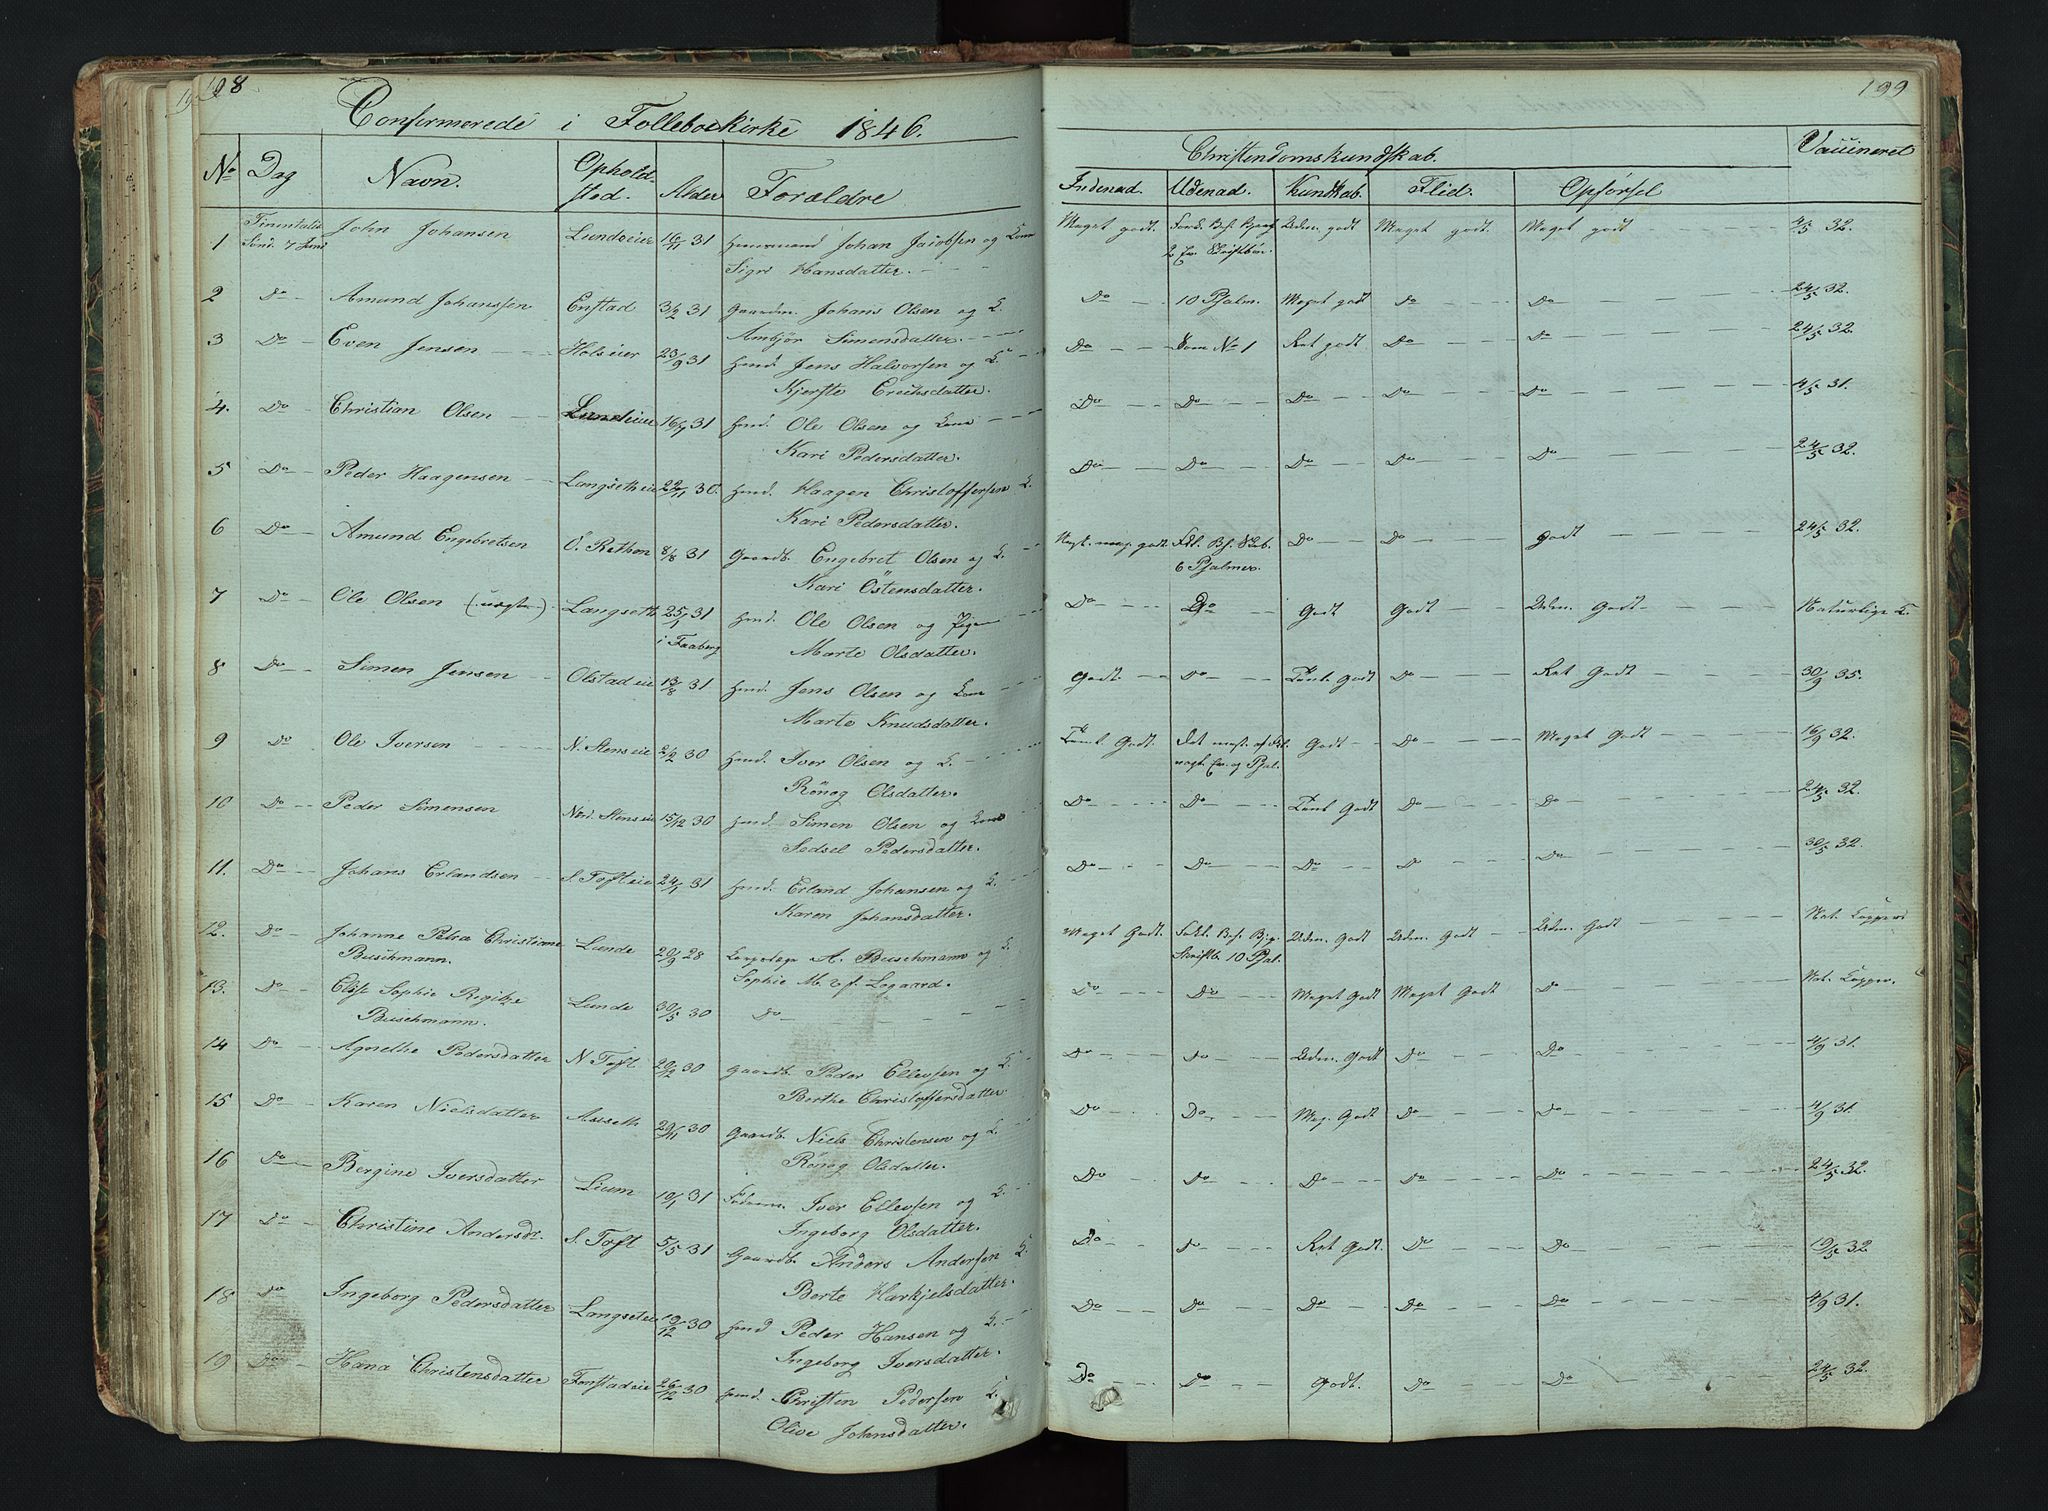 198
Confirmerede i Folleboekirke 1846.
No Dag Navn. Opholdsted. Alder Forældre
1 Sönd. 7 Juni John Johansen Lundeeier 16/11 31 Huusmand Johan Jacobsen og Kone
Sigri Hansdatter.
2 Do Amund Johanssen Enstad 3/2 31 Gaardm. Johans Olsen og K.
Ambjör Simensdatter.
3 Do Even Jensen Holseier 23/9 31 Huusd. Jens Halvorsen og K.
Kjerste Erichsdatter.
4. Do Christian Olsen Lundeeier 16/7 31 Huusd. Ole Olsen og Kone
Kari Pedersdatter.
5 Do Peder Haagensen Langseth eie 22/11 30. Huusd. Haagen Christoffersen K.
Kari Pedersdatter.
6 Do Amund Engebretsen Ö. Rethen 8/8 31 Gaardb. Engebret Olsen og K.
Kari Östensdatter.
7 Do Ole Olsen (uægte) Langseth 25/1 31 Huusd. Ole Olsen og Pigen
i Faaberg Marte Olsdatter.
8 Do Simen Jensen Olstadeie 13/8 31 Huusd. Jens Olsen og Kone
Marte Knudsdatter.
9 Do Ole Iversen N. Stens eie 2/2 30 Huusd. Iver Olsen og K.
Rönog Olsdatter.
10 Do Peder Simensen Nord. Stens eie 15/12 30 Huusd. Simen Olsen og Kone
Sedsel Pedersdatter.
11. Do Johans Erlandsen S. Toft eie 24/1 31 Huusd. Erland Johansen og K.
Karen Johansdatter.
12. Do Johanne Petra Christianne Lunde 20/9 28 A. Buschmann og K.
Buschmann. Sophie M. f. Logaard.
13. Do Elise Sophie Regitze Lunde 30/5 30 Do
Buschmann.
14 Do Agnethe Pedersdatter N Toft 20/2 30 Gaardb. Peder Ellevsen og K.
Berthe Christoffersdatter
15 Do Karen Nielsdatter Aaseth 29/11 30 Gaardb. Niels Christensen og K.
Rönog Olsdatter.
16 Do Bergine Iversdatter Lium 10/1 31 Iver Ellevsen og K.
Ingeborg Olsdatter.
17 Do Christine Andersdr. S. Toft 5/5 31 Gaardb. Anders Andersen K.
Berte Harkjelsdatter.
18 Do Ingeborg Pedersdatter Langseteie 19/12 30 Huusd Peder Hansen og K.
Ingeborg Iversdatter.
19 Do Hana Christensdatter Forstadeie 26/12 30 Huusd. Christen Pedersen K.
Olive Johansdatter.
199
Christendomskundskab. Vaccineret
Indenad. Udenad. Kundskab. Flid. Opförsel
Meget godt. Udm. godt Meget godt. Meget godt 4/5 32.
2 Ev. Skriftbön.
Do 10 Psalm. Meget godt Do Do 24/5 32.
Do Som No 1 Ret godt Do Do 24/5 32.
Do Do Do Do Do 4/5 31.
Do Do Do Do Do 24/5 32.
Næst. meg. godt Do Do Godt 24/5 32.
6 Psalmer.
Do Do Godt Godt Udm. Godt Naturlige K.
Godt. Do Tåml. Godt Do Ret Godt 30/9 35.
Tåml. Godt. Det mest. af Fkl. Godt Do Meget Godt 16/9 32.
nogl. Ev. og Psal.
Do Do Tåml Godt Do Do 24/5 32.
Do Do Do Do Do 30/5 32.
Meget Godt. Udm. Godt Udm. Godt Udm. Godt Nat. Kopper
Skriftb 10 Psal.
Do Do Meget Godt Meget Godt Do Nat. Kopper.
Do Do Udm. Godt Do Do 4/9 31.
Do Do Meg. Godt Do Do 4/9 31.
Do Do Do Do Do 24/5 32.
Do Do Ret Godt. Do Do 19/5 32
Do Do Do Do Do 4/9 31.
Do Do Godt. Do Do 24/5 32.